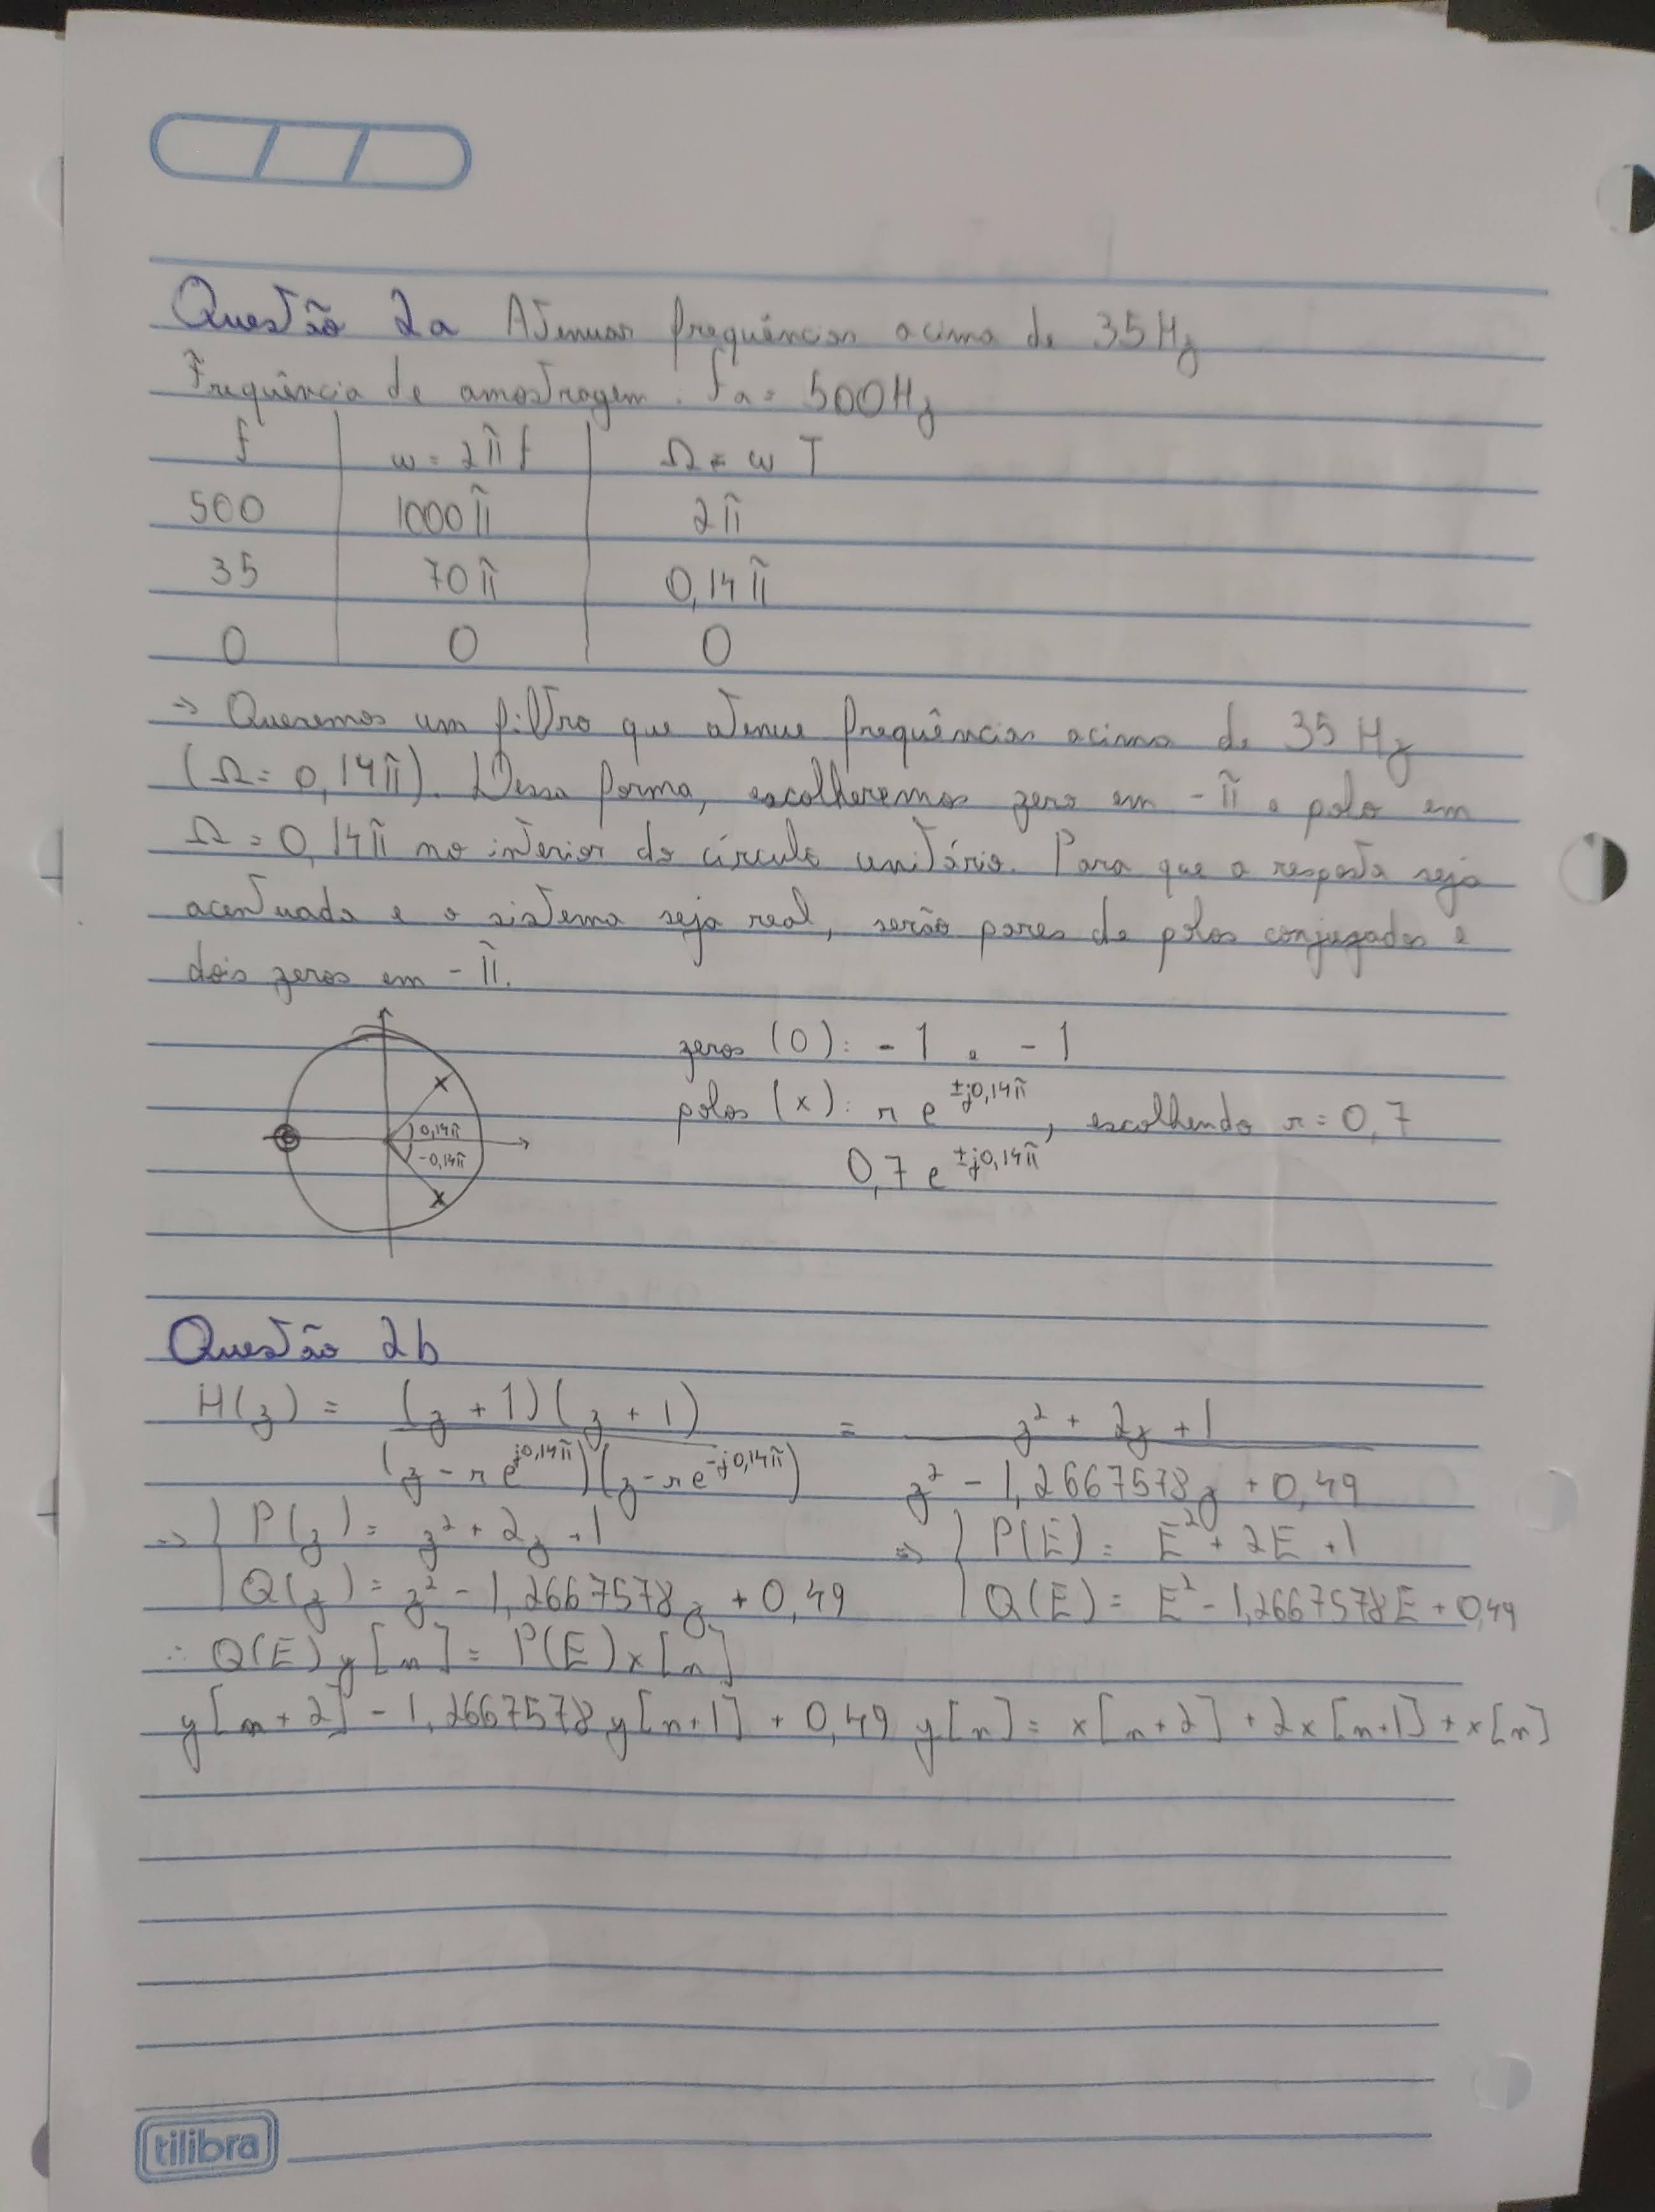 Questão 2a Atenuar frequências acima de 35Hz
Frequência de amostragem: fa = 500Hz
f | ω = 2πf | Ω = ωT
500 | 1000π | 2π
35 | 70π | 0,14π
0 | 0 | 0
⇒ Queremos um filtro que atenue frequências acima de 35 Hz
(Ω = 0,14π). Dessa forma, escolheremos zero em -π e polo em
Ω = 0,14π no interior do círculo unitário. Para que a resposta seja
acentuada e o sistema seja real, serão pares de polos conjugados e
dois zeros em -π.
zeros (0): -1 e -1
polos (x): r e^±j0,14π, escolhendo r = 0,7
0,7 e^±j0,14π
0,14π
-0,14π
Questão 2b
H(z) = (z + 1)(z + 1) / (z - r e^j0,14π)(z - r e^-j0,14π) = z² + 2z + 1 / z² - 1,2667578z + 0,49
⇒ { P(z) = z² + 2z + 1 ⇒ { P(E) = E² + 2E + 1
Q(z) = z² - 1,2667578z + 0,49 Q(E) = E² - 1,2667578E + 0,49
∴ Q(E) y[n] = P(E) x[n]
y[n + 2] - 1,2667578 y[n+1] + 0,49 y[n] = x[n+2] + 2x[n+1] + x[n]
tilibra